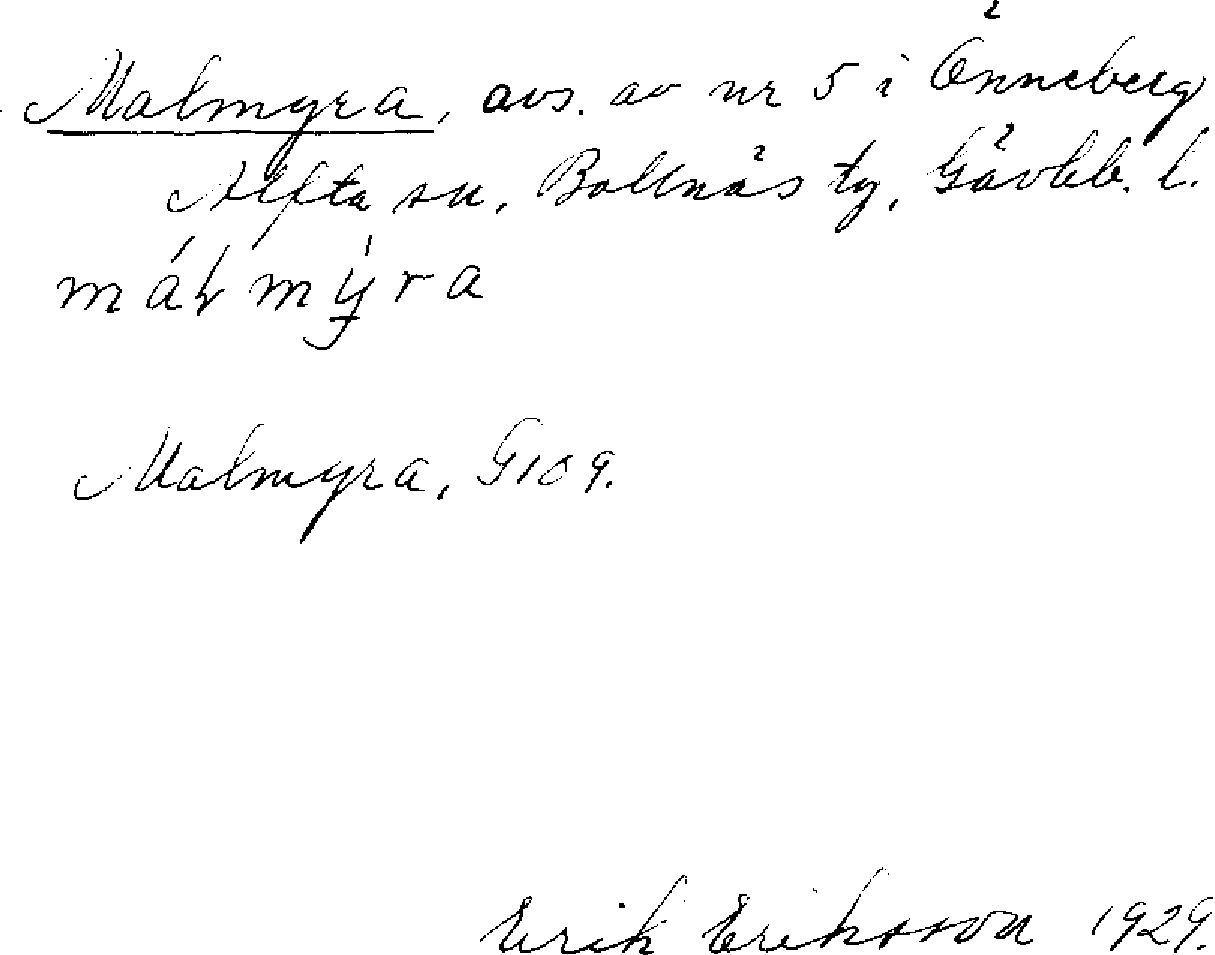 Malmyra, avs. av nr 5 i Önneberg
Alfta sn, Bollnäs tg, Gävleb. l.
Malmyra, G109.
Erik Eriksson 1929.